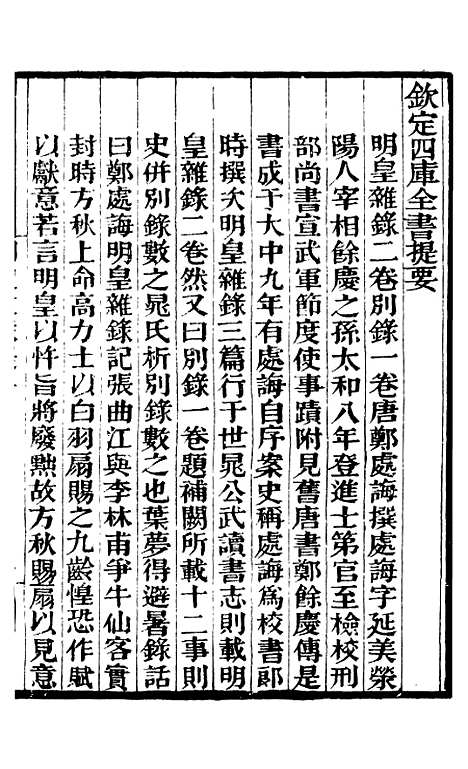 欽定四庫全書提要
明皇雜錄二卷別錄一卷唐鄭處誨撰處誨字延美滎
陽人宰相餘慶之孫太和八年登進士第官至檢校刑
部尚書宣武軍節度使事蹟附見舊唐書鄭餘慶傳是
書成于大中九年有處誨自序案史稱處誨為校書郎
時撰次明皇雜錄三篇行于世晁公武讀書志則載明
皇雜錄二卷然又曰別錄一卷題補闕所載十二事則
史併別錄數之晁氏析別錄數之也葉夢得避暑錄話
曰鄭處誨明皇雜錄記張曲江與李林甫爭牛仙客實
封時方秋上命高力士以白羽扇賜之九齡惶恐作賦
以獻意若言明皇以忤旨將廢黜故方秋賜扇以見意